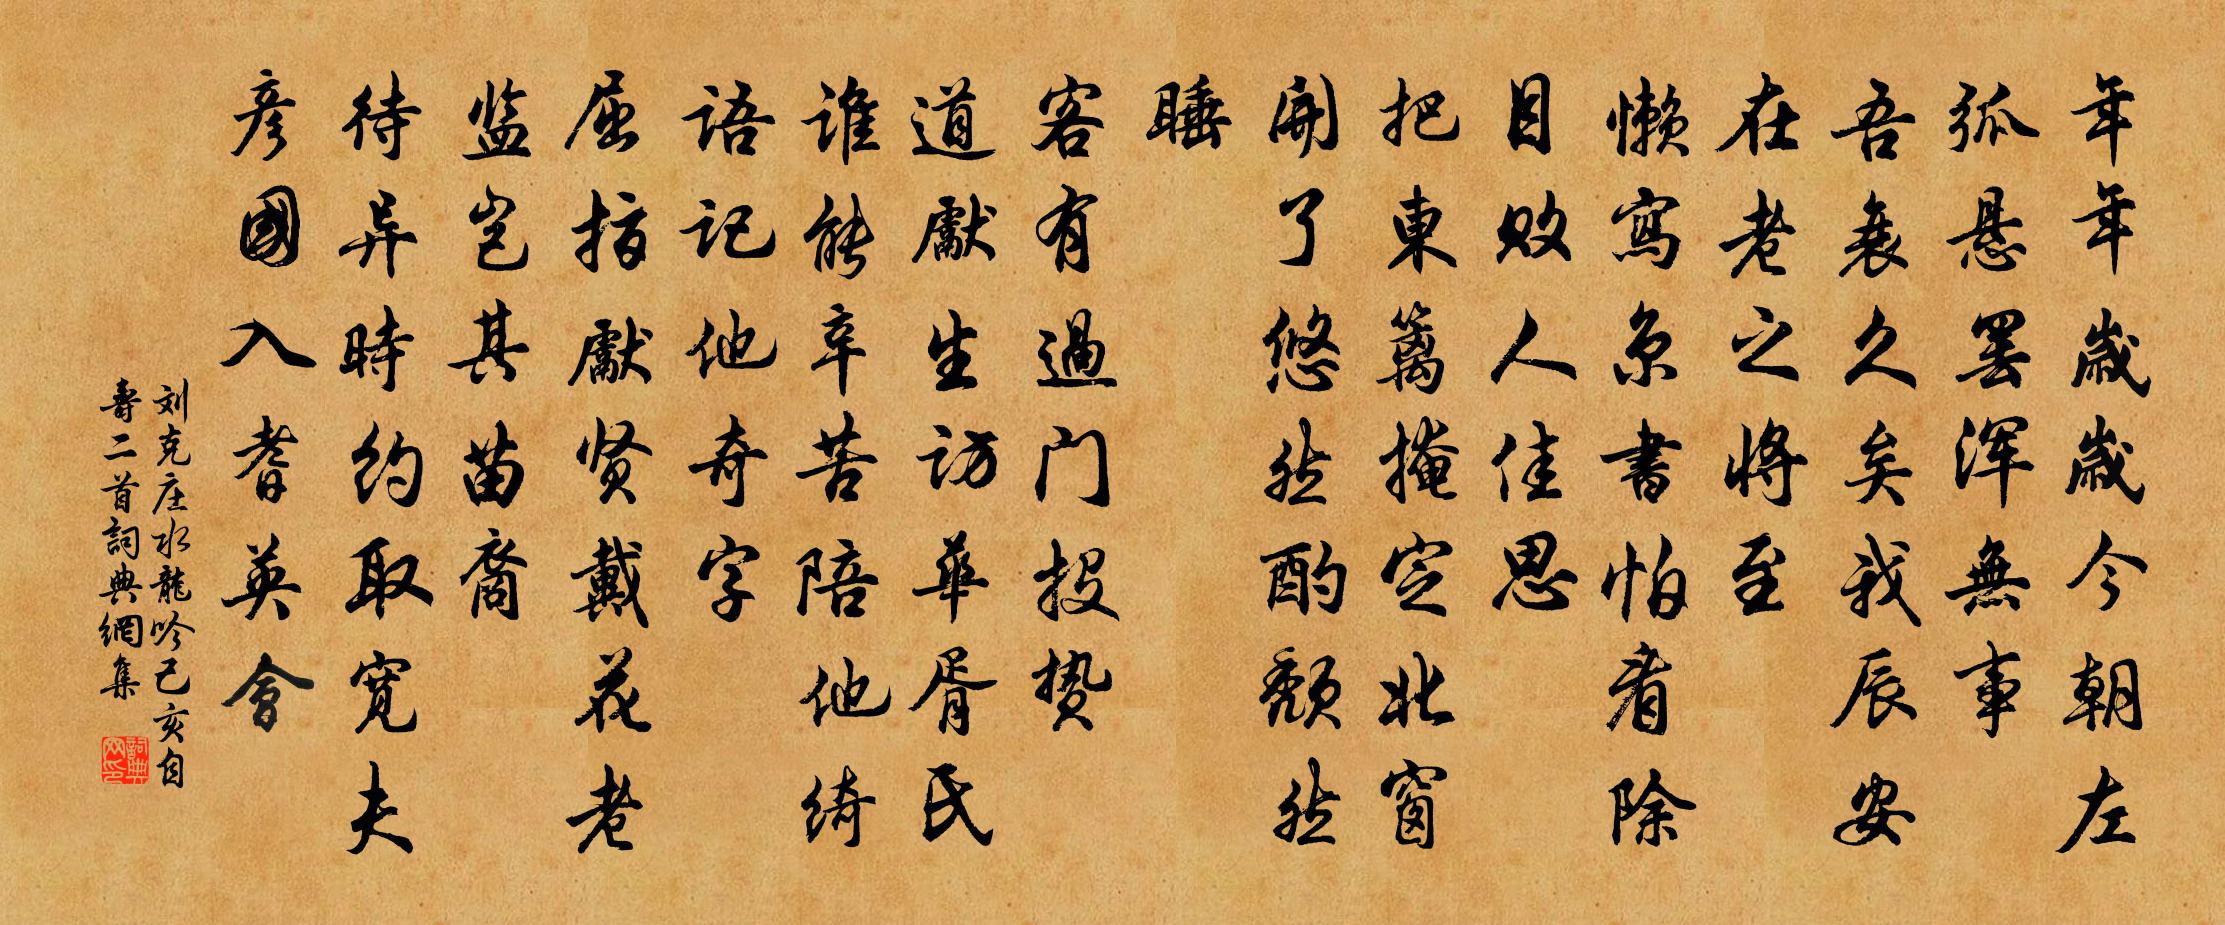 年年歲歲今朝左
弧悬罢浑無事
吾衰久矣我辰安
在老之將至
懒寫京書怕看除
目败人佳思
把東篱掩定北窗
開了悠然酌颓然
睡
客有過门投贽
道獻生访華胥氏
谁能辛苦陪他绮
語記他奇字
屈指獻贤戴花老
监岂其苗裔
待异時约取寬夫
彦國入耆英會
刘克庄水龍吟己亥自
壽二首詞典網集
詞典
网印